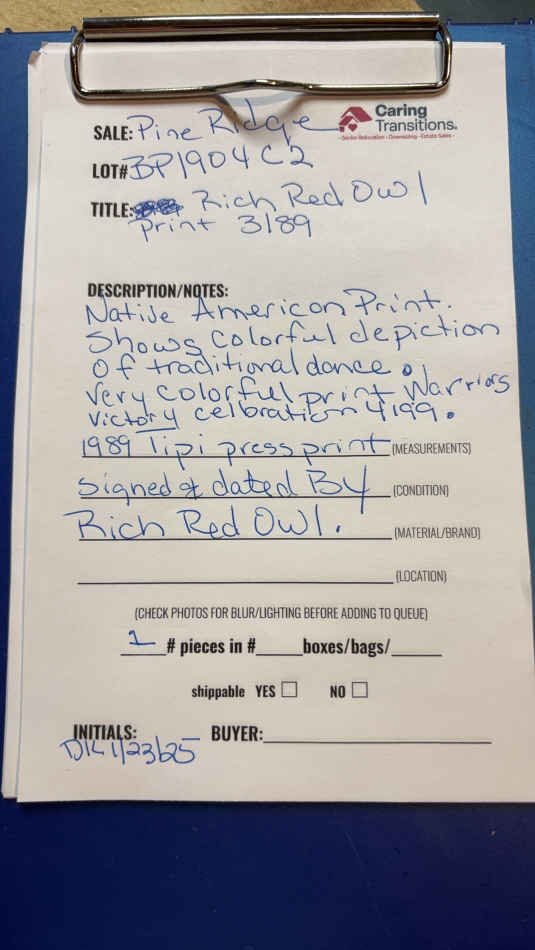 SALE: Pine Ridge
Caring
Transitions.
- Senior Relocation - Downsizing - Estate Sales -
LOT# BP1904 C2
TITLE: Rich Red Owl
print 3/89
DESCRIPTION/NOTES:
Native American Print.
Shows colorful depiction
of traditional dance.
Very colorful print Warriors
victory celbration 4/99.
1989 Tipi press print (MEASUREMENTS)
Signed & dated By (CONDITION)
Rich Red Owl. (MATERIAL/BRAND)
(LOCATION)
(CHECK PHOTOS FOR BLUR/LIGHTING BEFORE ADDING TO QUEUE)
1 # pieces in # boxes/bags/
shippable YES NO
INITIALS: BUYER:
DK 1/23/25